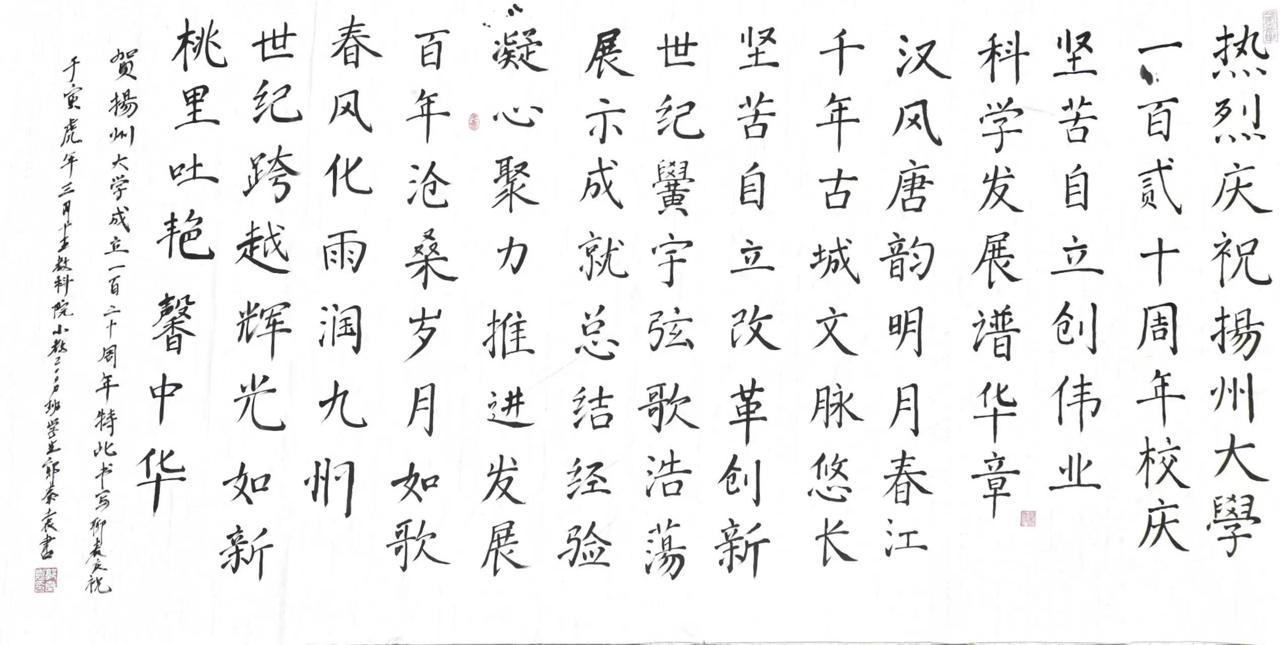 热烈庆祝揚州大學
一百贰十周年校庆
坚苦自立创伟业
科学发展谱华章
汉风唐韵明月春江
千年古城文脉悠长
坚苦自立改革创新
世纪黉宇弦歌浩荡
展示成就总结经验
凝心聚力推进发展
百年沧桑岁月如歌
春风化雨润九州
世纪跨越辉光如新
桃里吐艳馨中华
賀揚州大学成立一百二十周年特此书写聊表庆祝
于寅虎年三月十五教科院小教二〇〇班学生郭